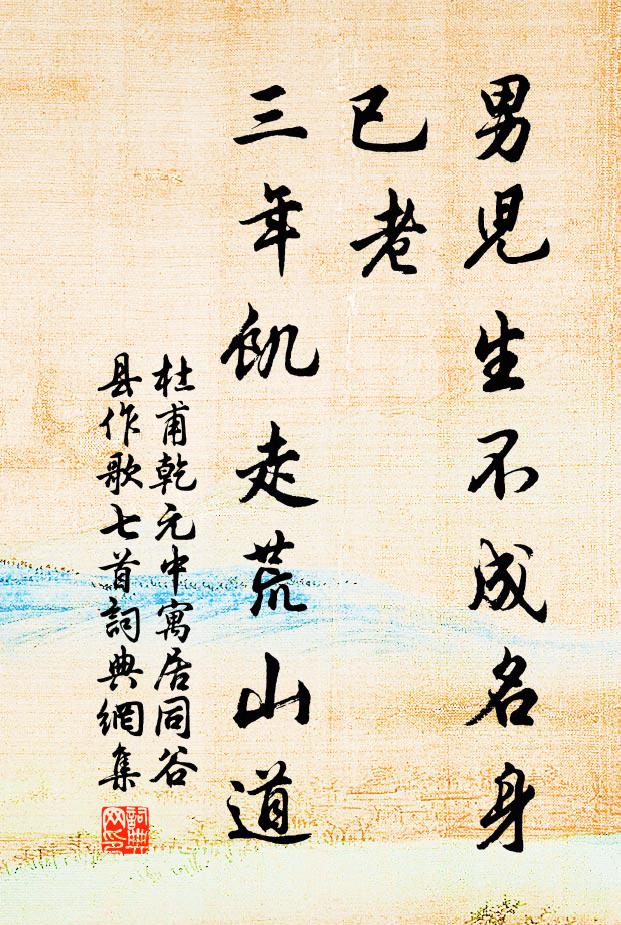 男児生不成名身
已老
三年飢走荒山道
杜甫乾元中寓居同谷
县作歌七首詞典網集
詞典
网印